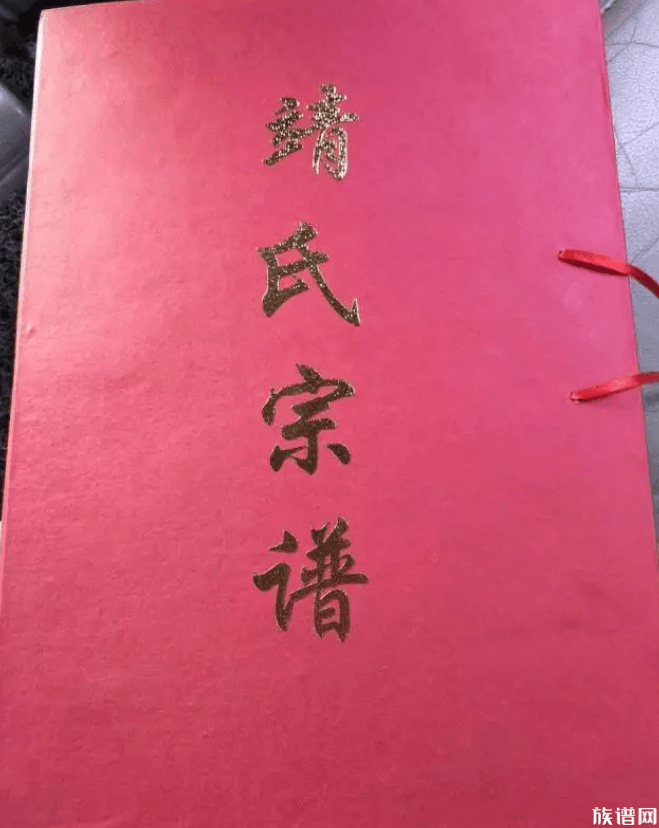 靖氏宗谱
族谱网